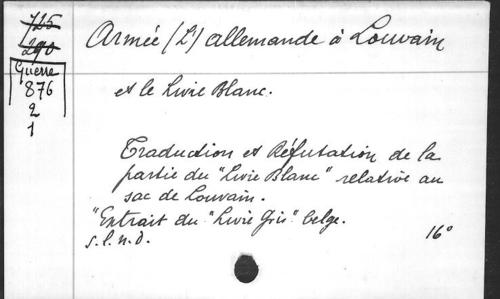 725
290
Guerre
876
2
1
Armée (L') allemande à Louvain
et le Livre Blanc.
Traduction et Réfutation de la
partie du "Livre Blanc" relative au
sac de Louvain.
"Extrait du "Livre Gris" belge.
s.l.n.d. 16°